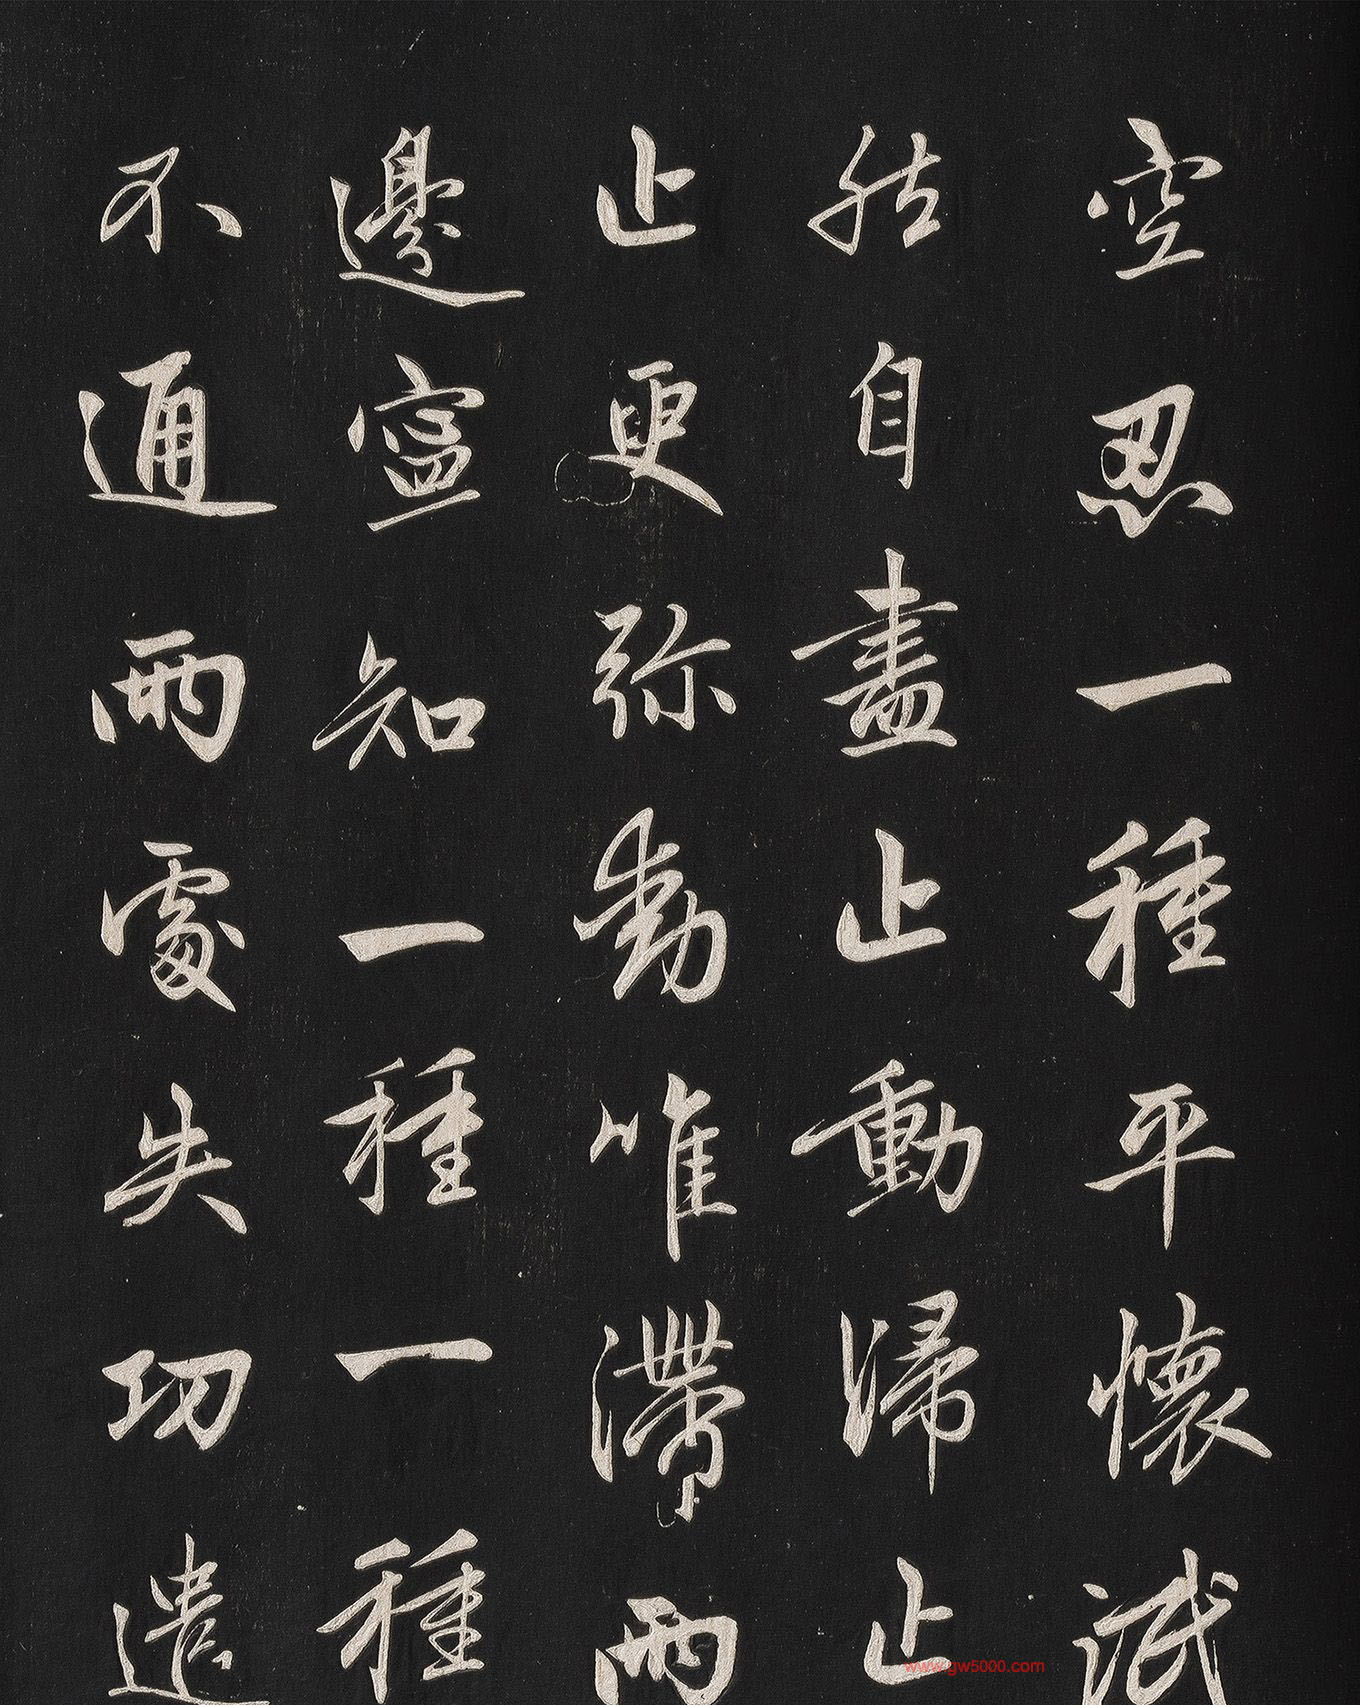 空忍一種平懷泯
然自盡止動歸止
止更弥動唯滯兩
邊寧知一種一種
不通兩處失功遣
www.gw5000.com